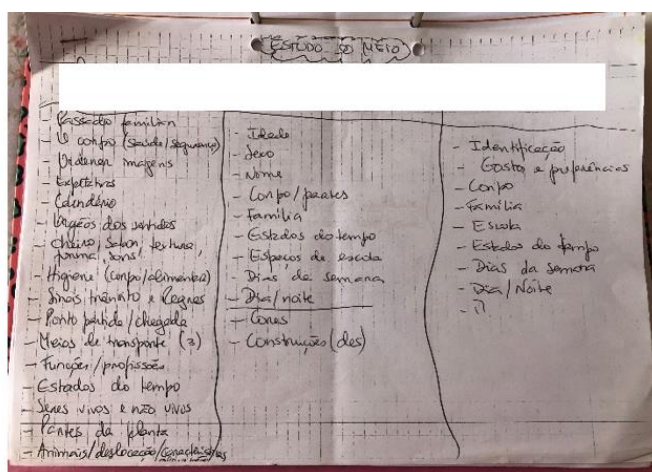 ESTUDO DO MEIO
- Passado familiar
- O corpo (saúde/segurança)
- Ordenar imagens
- Expectativas
- Calendário
- Orgãos dos sentidos
- cheiro, sabor, textura,
forma, sons
- Higiene (corpo/alimentar)
- Sinais trânsito e Regras
- Ponto partida/chegada
- Meios de transporte (3)
- Funções/profissões
- Estados do tempo
- Seres vivos e não vivos
- Partes da planta
- Animais/deslocação/características
- Idade
- Sexo
- Nome
- Corpo/partes
- Família
- Estados do tempo
- Espaços da escola
- Dias da semana
- Dia/noite
- Cores
- Construção (des)
- Identificação
- Gostos e preferências
- Corpo
- Família
- Escola
- Estados do tempo
- Dias da semana
- Dia/Noite